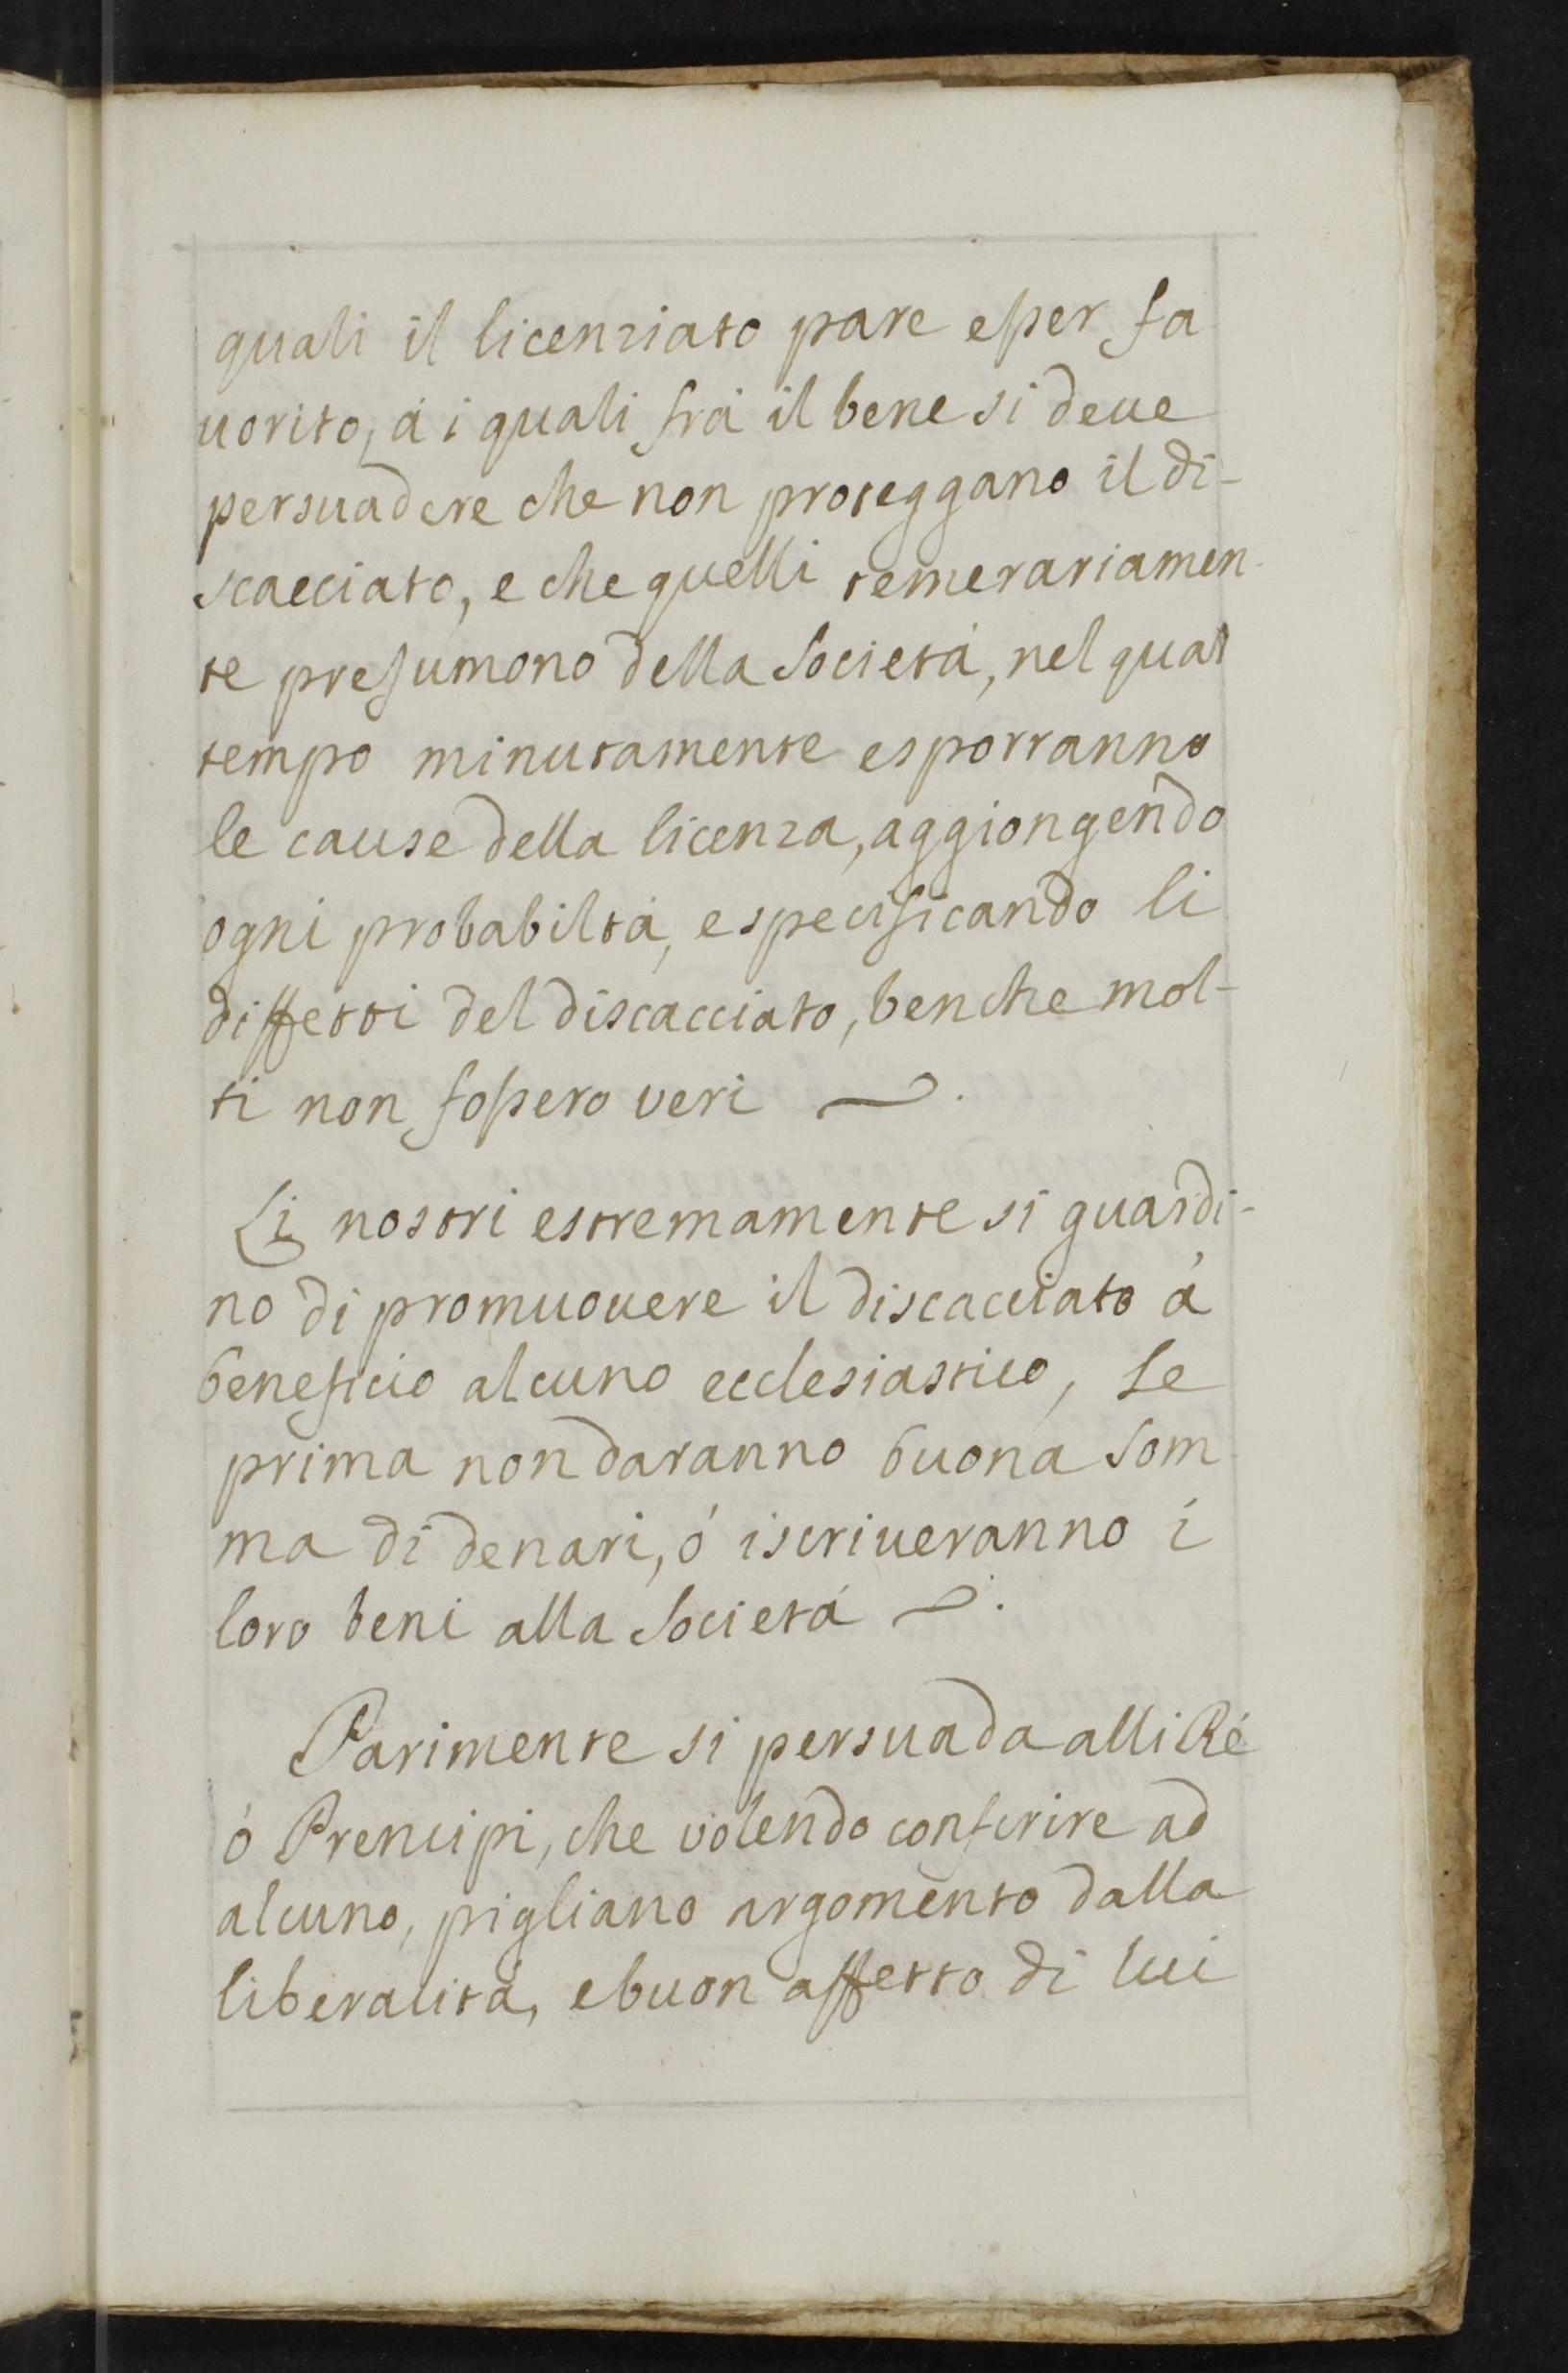 quali il licenziato pare esser fa
uorito, á i quali frá il bene si deue
persuadere che non proteggano il di-
scacciato, e che quelli temerariamen-
te presumono della Societá, nel qual
tempo minutamente esporranno
le cause della licenza, aggiongendo
ogni probabiltá, e specificando li
diffetti del discacciato, benche mol-
ti non fossero veri ~.
Li nostri estremamente si guardi-
no di promuouere il discacciato á
beneficio alcuno ecclesiastico, se
prima non daranno buona som
ma di denari, ó iscriueranno i
loro beni alla Societá ~.
Parimente si persuada alli Ré
ó Prencipi, che volendo conferire ad
alcuno, pigliano argomento dalla
liberalitá, e buon affetto di lui